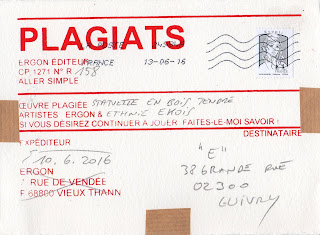 PLAGIATS
ERGON ÉDITEUR FRANCE 13-06-16
CP.1271 N° R 158
ALLER SIMPLE
ŒUVRE PLAGIÉE STATUETTE EN BOIS TENDRE
ARTISTES ERGON & ETHNIE EKOIS
SI VOUS DÉSIREZ CONTINUER A JOUER FAITES-LE MOI SAVOIR !
DESTINATAIRE
EXPÉDITEUR
10.6.2016
ERGON
7 RUE DE VENDÉE
F 68800 VIEUX THANN
"E"
38 GRANDE RUE
02300
GUIVRY